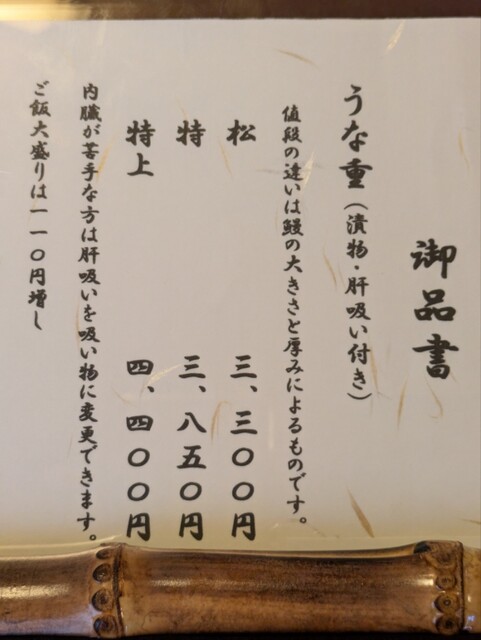 御品書
うな重(漬物・肝吸い付き)
値段の違いは鰻の大きさと厚みによるものです。
松 三、三〇〇円
特 三、八五〇円
特上 四、四〇〇円
内臓が苦手な方は肝吸いを吸い物に変更できます。
ご飯大盛りは一一〇円増し